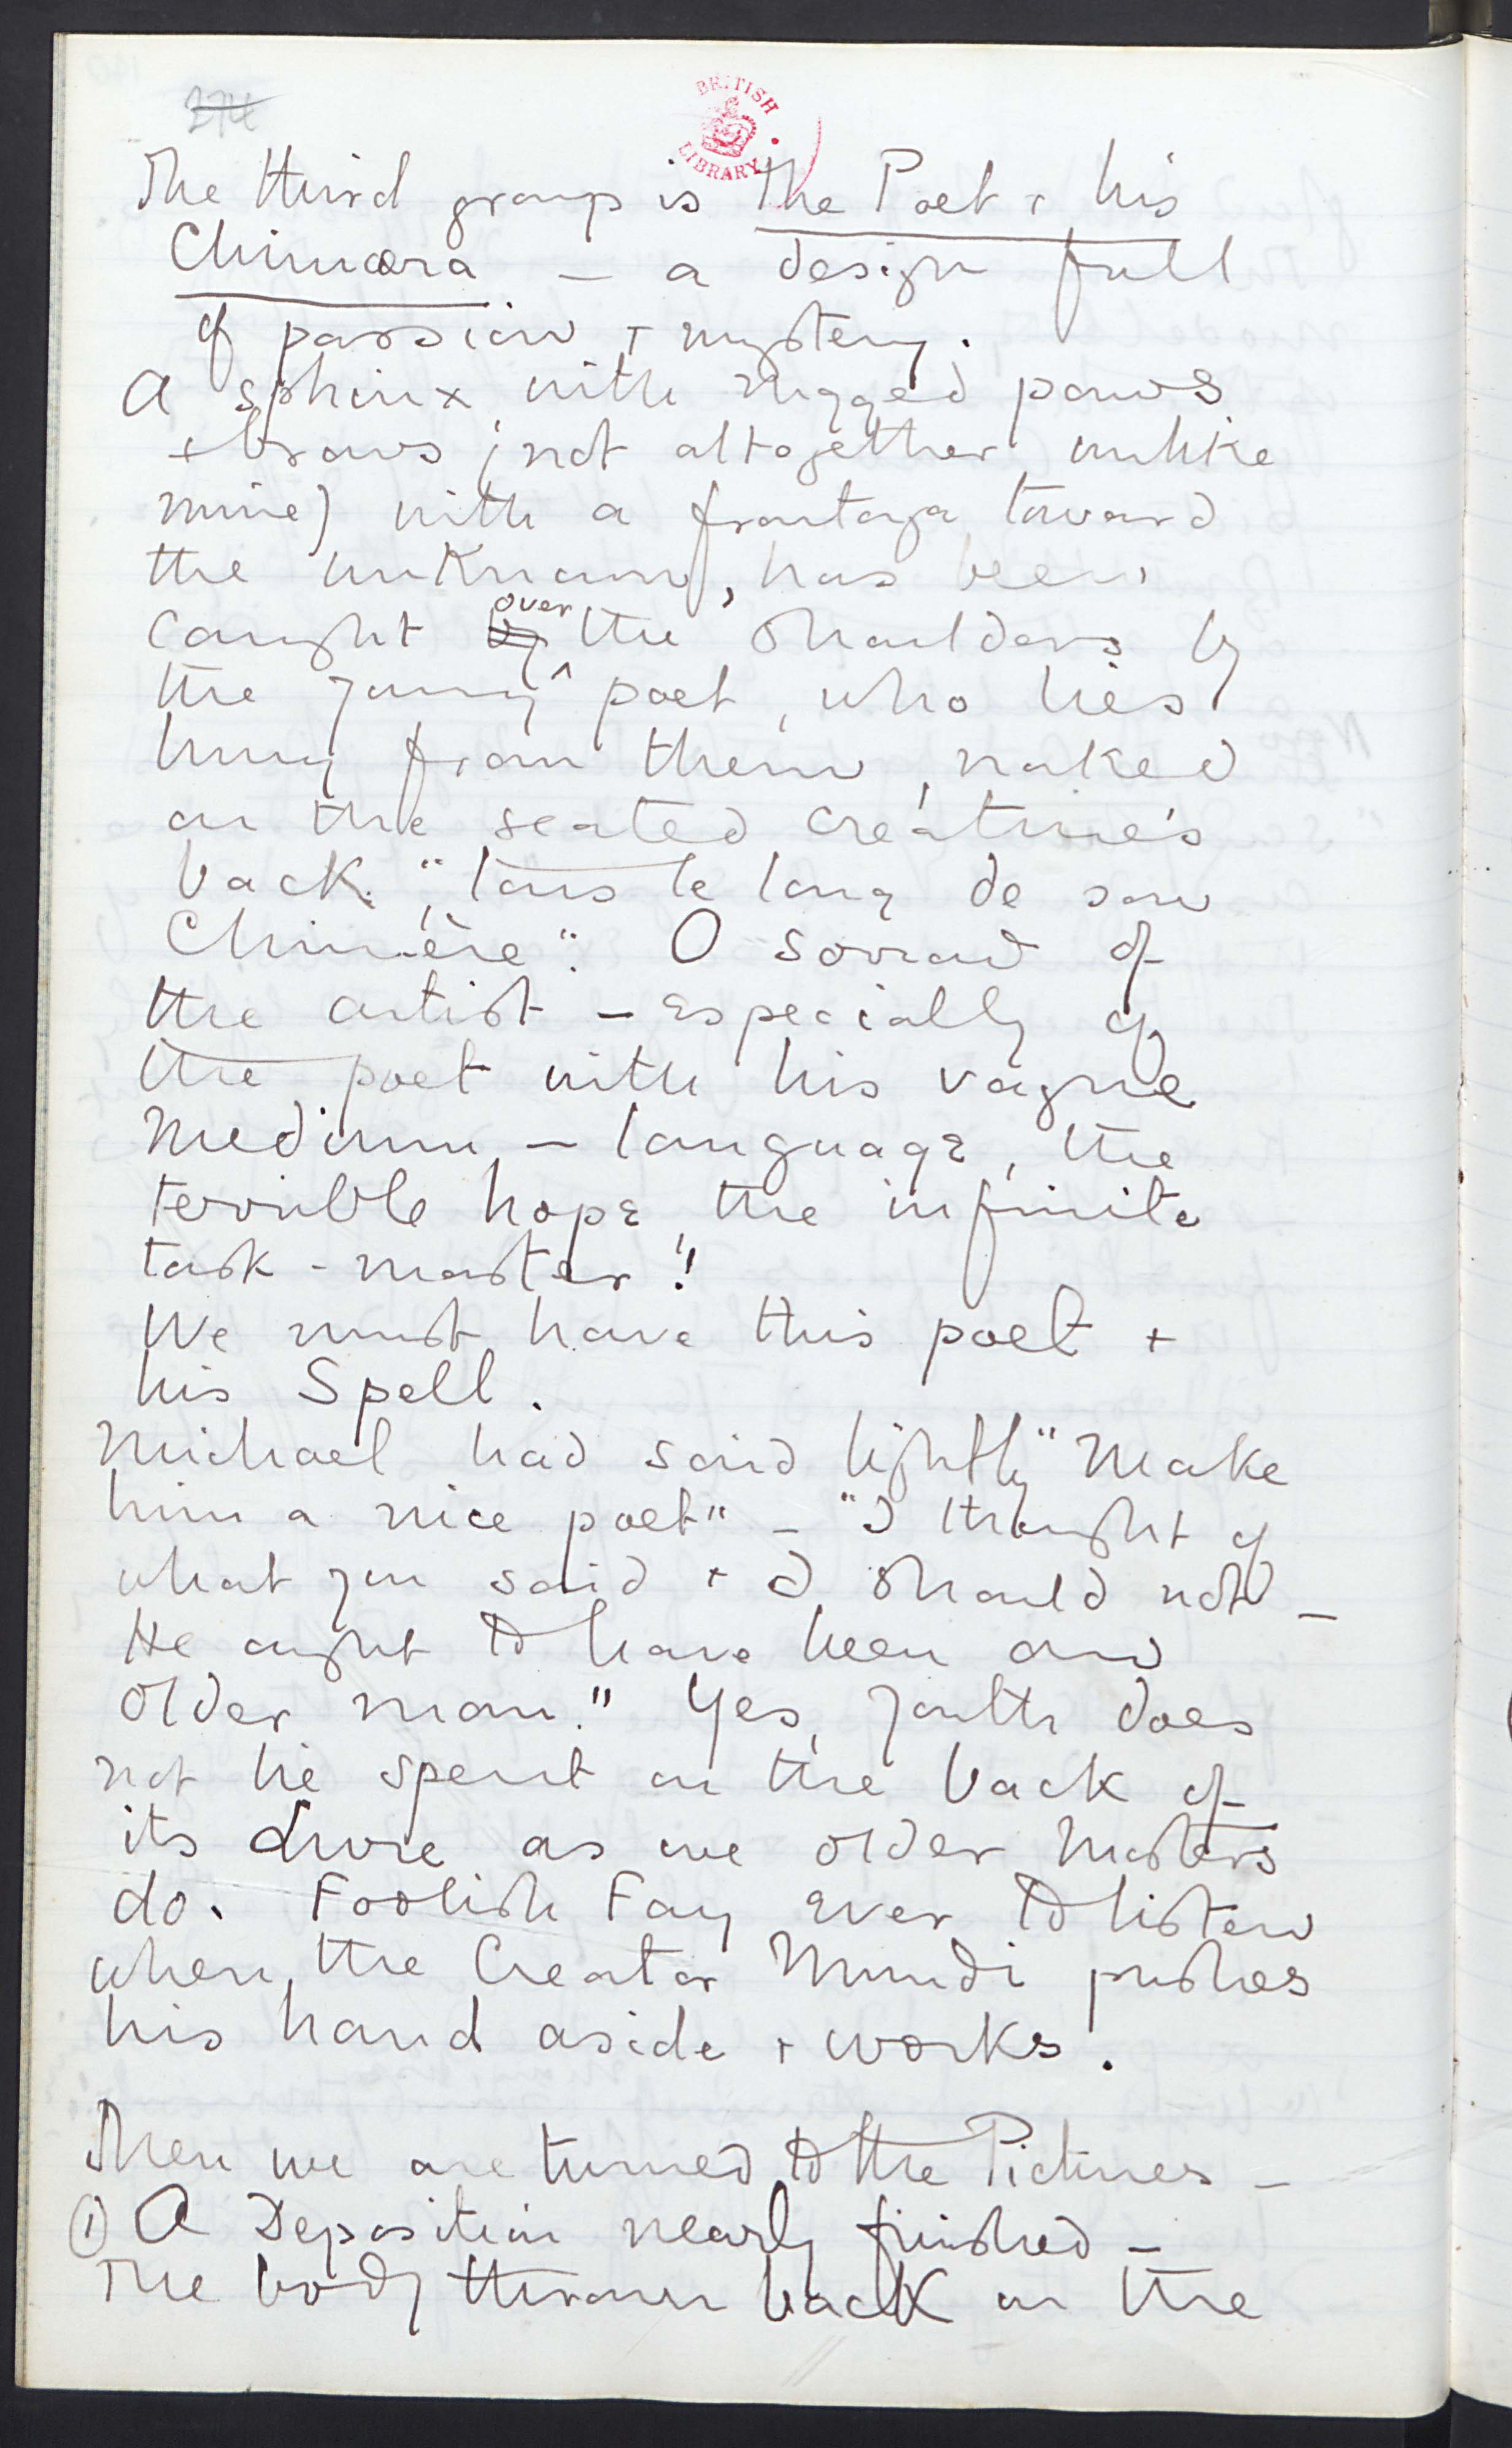 274
BRITISH
LIBRARY
The third group is The Poet + his
Chimæra – a design full
of passion + mystery.
A sphinx with rugged paws
+ brows (not altogether unlike
mine) with a frontage toward
the unknown, has been
caught by over the shoulders by
the young poet, who lies
hung from them, naked
on the seated creature's
back, "tous le long de son
Chimère". O sorrow of
the artist – especially of
the poet with his vague
medium – language, the
terrible hope, the infinite
task-master!
We must have this poet +
his Spell.
Michael had said lightly "Make
him a nice poet" – "I thought of
what you said + I should not –
He ought to have been an
older man." Yes, youth does
not lie spent on the back of
its desire as we older
do. Foolish Fay ever to listen
when the Creator Mundi pushes
his hand aside + works.
Then we are turned to the Pictures –
(1) A Deposition nearly finished –
The body thrown back on the